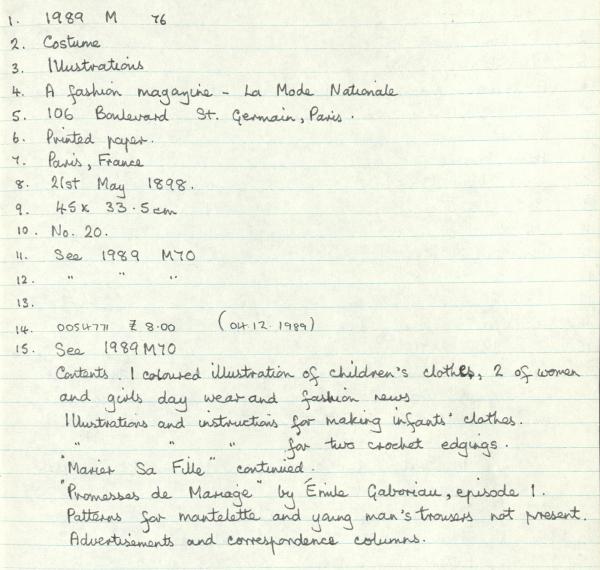 1. 1989 M 76
2. Costume
3. Illustrations
4. A fashion magazine - La Mode Nationale
5. 106 Boulevard St. Germain, Paris.
6. Printed paper.
7. Paris, France
8. 21st May 1898.
9. 45 x 33.5cm
10. No. 20.
11. See 1989 M70
12. " " "
13.
14. 0054771 Z 8.00 (04.12.1989)
15. See 1989 M70
Contents. 1 coloured illustration of children's clothes, 2 of women
and girls day wear and fashion news
Illustrations and instructions for making infants' clothes.
" " " for two crochet edgings.
"Marier Sa Fille" continued.
"Promesses de Mariage" by Émile Gaboriau, episode 1.
Patterns for mantelette and young man's trousers not present.
Advertisements and correspondence columns.